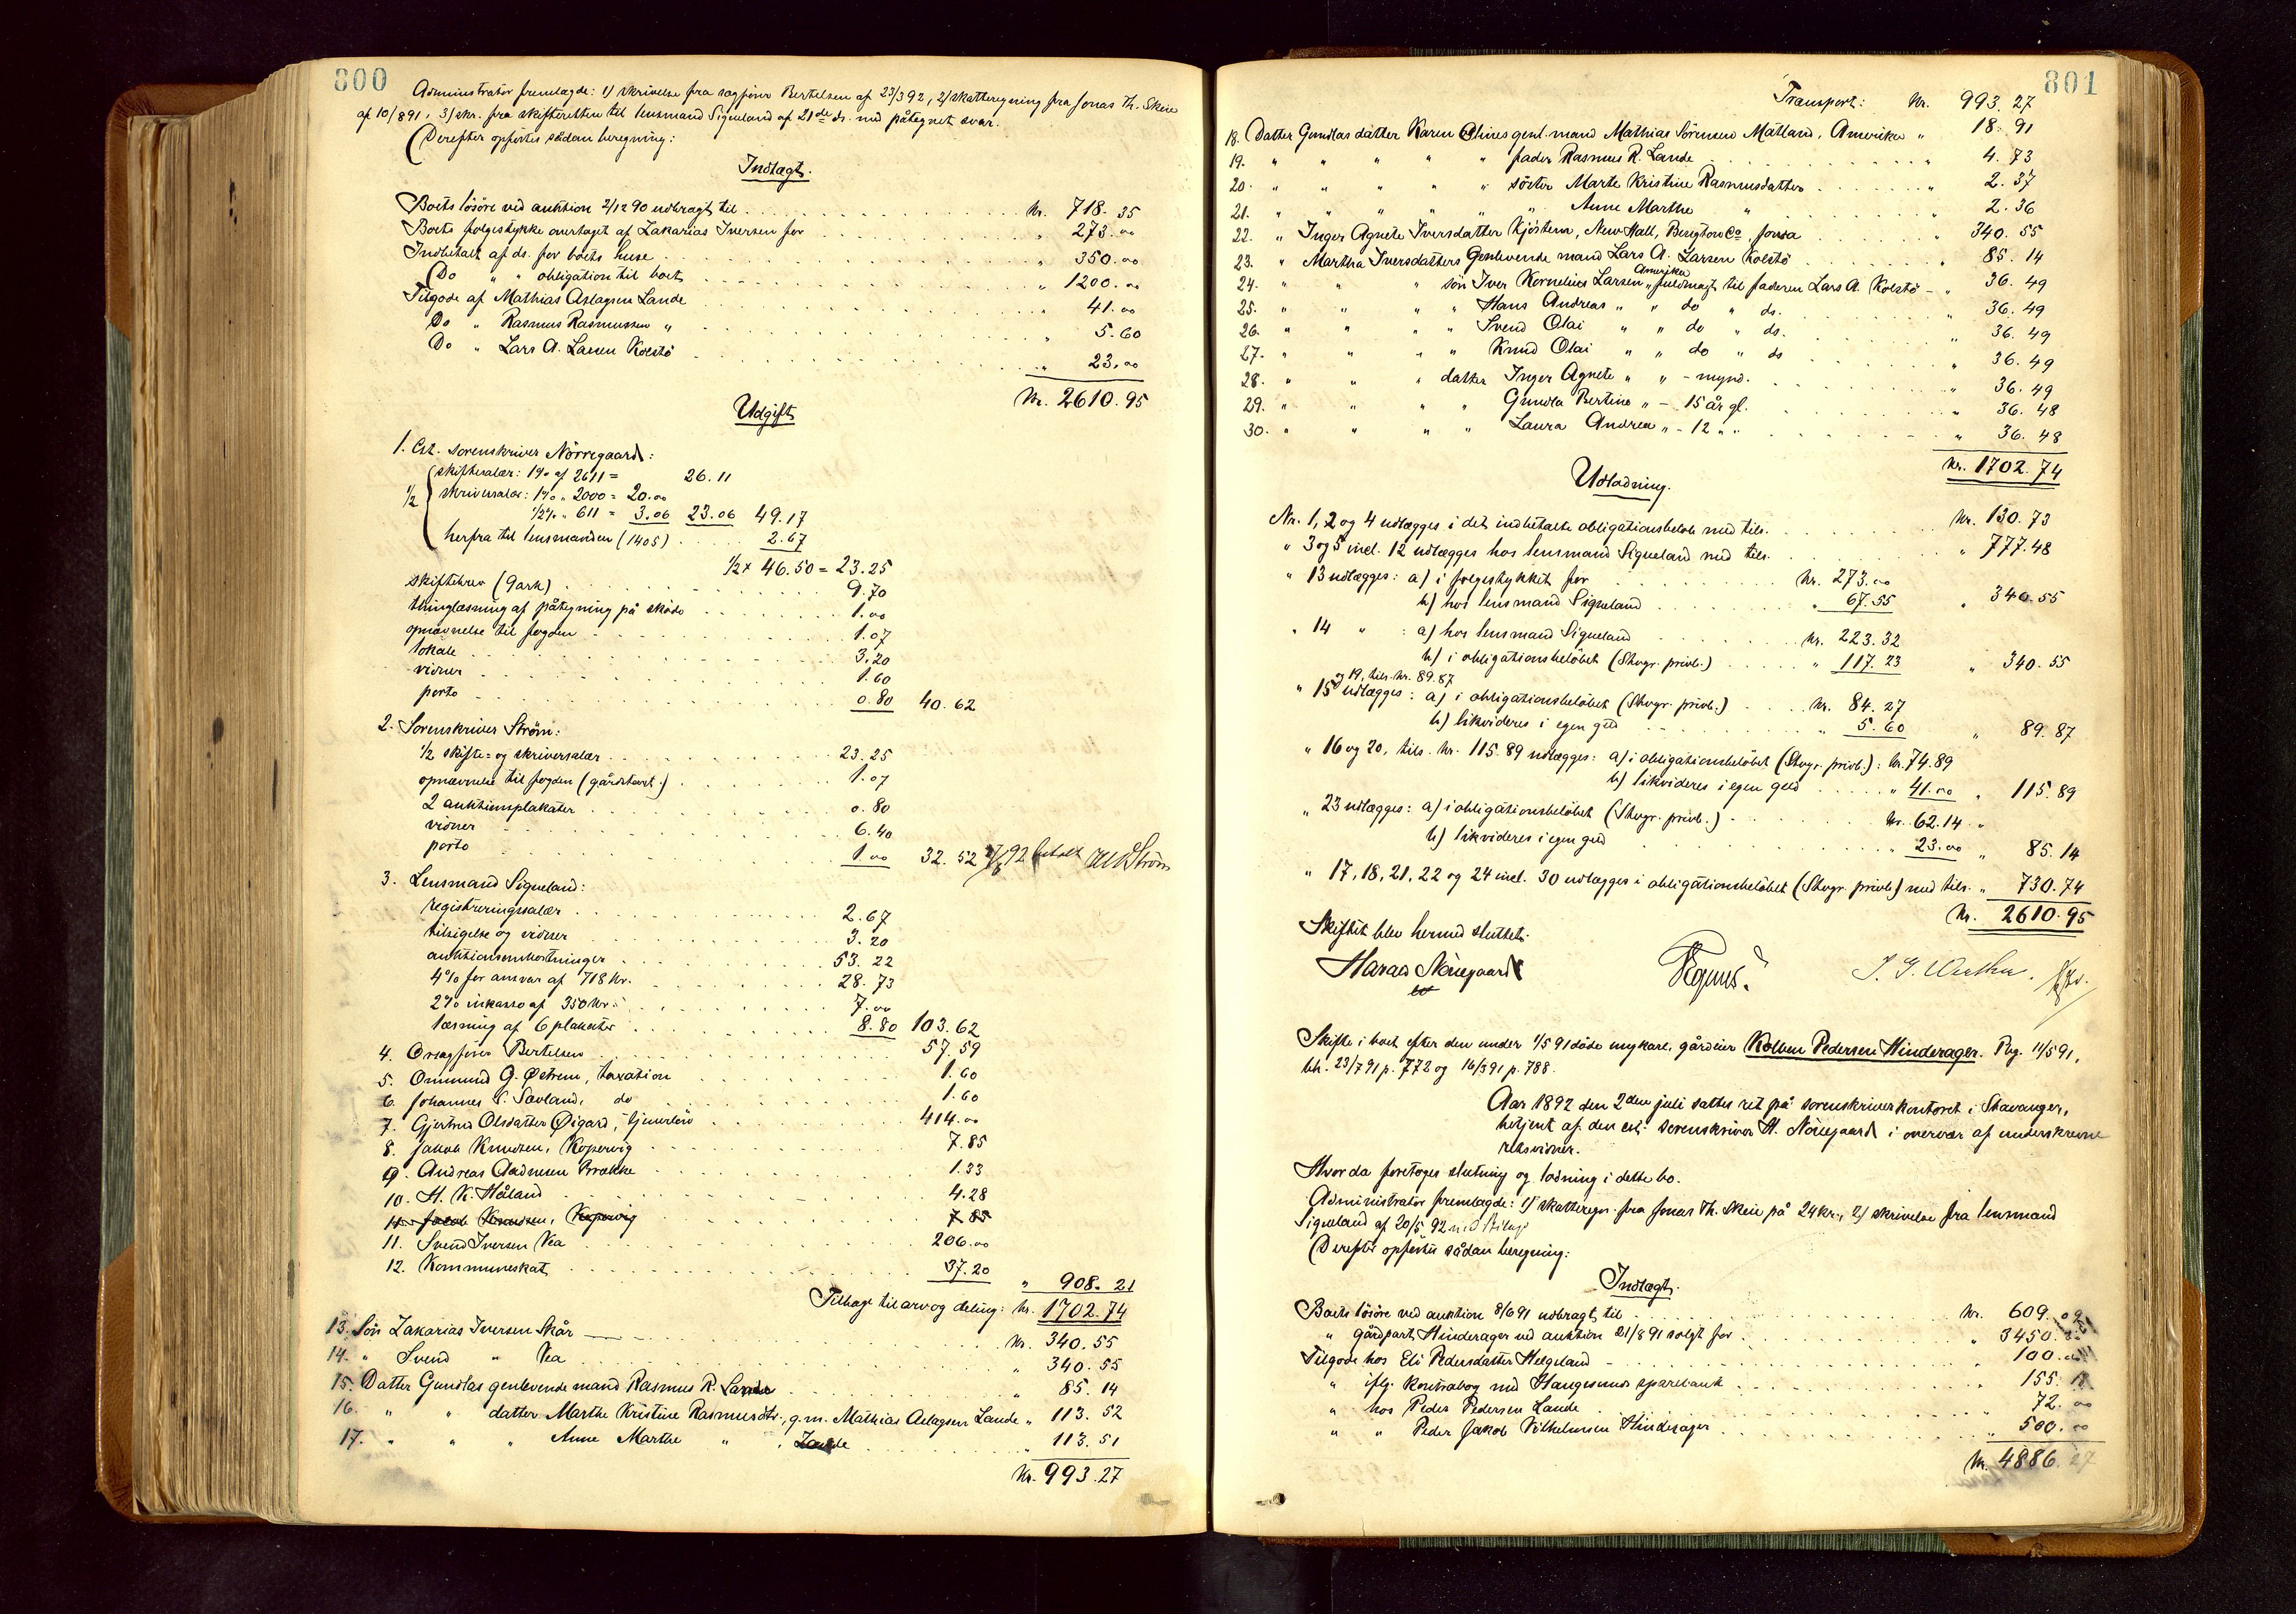 800
Administrator fremlagde: 1) skrivelse fra sagfører Bertelsen af 23/3 92, 2) skatteregning fra Jonas Th. Skeie
af 10/8 91, 3) skr. fra skifteretten til lensmand Sigveland af 21de ds. med påtegnet svar.
Derefter opførtes sådan beregning:
Indtægt.
Boets løsøre ved auktion 2/12 90 udbragt til Kr. 718. 35
Boets følgestykke overtaget af Zakarias Iversen for " 273. 00
Indbetalt af ds. for boets huse " 350. 00
Do " " obligation til boet " 1200. 00
Tilgode af Mathias Aslagsen Lande " 41. 00
Do " Rasmus Rasmussen " " 5. 60
Do " Lars A. Larsen Kolstø " 23. 00
Kr. 2610. 95
Udgift
1. Cst. sorenskriver Nørregaard:
1/2 skiftesalær: 1% af 2611 = 26. 11
skriversalær: 1% " 2000 = 20. 00
1/2% " 611 = 3. 06 23. 06 49. 17
herfra til lensmanden (1405) 2. 67
1/2 x 46. 50 = 23. 25
skiftebrev (9 ark) 9. 70
thinglæsning af påtegning på skøde 1. 00
opnævnelse til fogden 1. 07
lokale 3. 20
vidner 1. 60
porto 0. 80 40. 62
2. Sorenskriver Strøm:
1/2 skifte- og skriversalær 23. 25
opnævnelse til fogden (gårdstaxt.) 1. 07
2 auktionsplakater 0. 80
vidner 6. 40
porto 1. 00 32. 52 92 betalt Strøm
3. Lensmand Sigveland:
registreringssalær 2. 67
tilsigelse og vidner 3. 20
auktionsomkostninger 53. 22
4% for ansvar af 718 kr. 28. 73
2% inkasso af 350 kr. 7. 00
læsning af 6 plakater 8. 80 103. 62
4. Ovsagfører Bertelsen 57. 59
5. Ommund G. Østrem, taxation 1. 60
6. Johannes S. Sævland, do 1. 60
7. Gjertrud Olsdatter Øigard, tjenerløn 414. 00
8. Jakob Knudsen, Kopervig 7. 85
9. Andreas Aadnesen Brække 1. 33
10. H. K. Håland 4. 28
11. Jakob Knudsen, Kopervig 7. 85
11. Svend Iversen Vea 206. 00
12. Kommuneskat 37. 20
" 908. 21
Tilbage til arv og deling: Kr. 1702. 74
13. Søn Zakarias Iversen Skår Kr. 340. 55
14. " Svend " Vea " 340. 55
15. Datter Gundlas genlevende mand Rasmus R. Lande " 85. 14
16. " " datter Marthe Kristine Rasmusdtr., g. m. Mathias Aslagsen Lande " 113. 52
17. " " " Anne Marthe " , Lande " 113. 51
Kr. 993. 27
801
Transport: Kr. 993. 27
18. Datter Gundlas datter Karen Olines genl. mand Mathias Sørensen Matland, Amerika " 18. 91
19. " " " " " fader Rasmus R. Lande " 4. 73
20. " " " " " søster Marte Kristine Rasmusdatter " 2. 37
21. " " " " " " Anne Marthe " " 2. 36
22. " Inger Agnete Iversdatter Kjøstem, New Hall, Co, " 340. 55
23. " Martha Iversdatters Genlevende mand Lars A. Larsen Kolstø " 85. 14
24. " " " søn Iver Kornelius Larsen, Amerika, fuldmagt til faderen Lars A. Kolstø - " 36. 49
25. " " " " Hans Andreas " " do " ds. " 36. 49
26. " " " " Svend Olai " " do " ds. " 36. 49
27. " " " " Knud Olai " " do " ds " 36. 49
28. " " " datter Inger Agnete " " - mynd. " 36. 49
29. " " " " Gundla Bertine " - 15 år gl. " 36. 48
30. " " " " Laura Andrea " - 12 " " " 36. 48
Kr. 1702. 74
Udlodning.
Nr. 1, 2 og 4 udlægges i det indbetalte obligationsbeløb med tils. Kr. 130. 73
" 3 og 5 incl. 12 udlægges hos lensmand Sigveland med tils. " 777. 48
" 13 udlægges: a) i følgestykket for Kr. 273. 00
b) hos lensmand Sigveland " 67. 55 " 340. 55
" 14 " : a) hos lensmand Sigveland Kr. 223. 32
b) i obligationsbeløbet (Stvgr. privb.) " 117. 23 " 340. 55
og 19, tils. kr. 89. 87
" 15 udlægges: a) i obligationsbeløbet (Stvgr. privb.) Kr. 84. 27
b) likvideres i egen geld " 5. 60 " 89. 87
" 16 og 20, tils. kr. 115. 89 udlægges: a) i obligationsbeløbet (Stvgr. privb.): Kr. 74. 89
b) likvideres i egen geld " 41. 00 " 115. 89
" 23 udlægges: a) i obligationsbeløbet (Stvgr. privb.) Kr. 62. 14 "
b) likvideres i egen geld " 23. 00 " 85. 14
" 17, 18, 21, 22 og 24 incl. 30 udlægges i obligationsbeløbet (Stvgr. privb.) med tils. " 730. 74
Kr. 2610. 95
Skiftet blev hermed sluttet.
Harald Nørregaard
cst
Skifte i boet efter den under 1/5 91 døde ungkarl, gårdeier Kolben Pedersen Hinderager. Reg. 11/5 91,
bh. 23/7 91 p. 772 og 16/3 91 p. 788.
Aar 1892 den 2den juli sattes ret på sorenskriverkontoret i Stavanger,
betjent af den cst. sorenskriver H. Nørregaard i overvær af underskrevne
retsvidner.
Hvor da foretoges slutning og lodning i dette bo.
Administrator fremlagde: 1) skatteregn. fra Jonas Th. Skeie på 24 kr., 2) skrivelse fra lensmand
Sigveland af 20/5 92 med bilag
Derefter opførtes sådan beregning:
Indtægt.
Boets løsøre ved auktion 8/6 91 udbragt til Kr. 609. 09
" gårdpart Hinderager ved auktion 21/8 91 solgt for " 3450. 00
Tilgode hos Eli Pedersdatter Helgeland " 100. 00
" iflg. kontrabog med Haugesunds sparebank " 155. 18
" hos Peder Pedersen Lande 72. 00
" " Peder Jakob Vilhelmsen Hinderager " 500. 00
Kr. 4886. 27